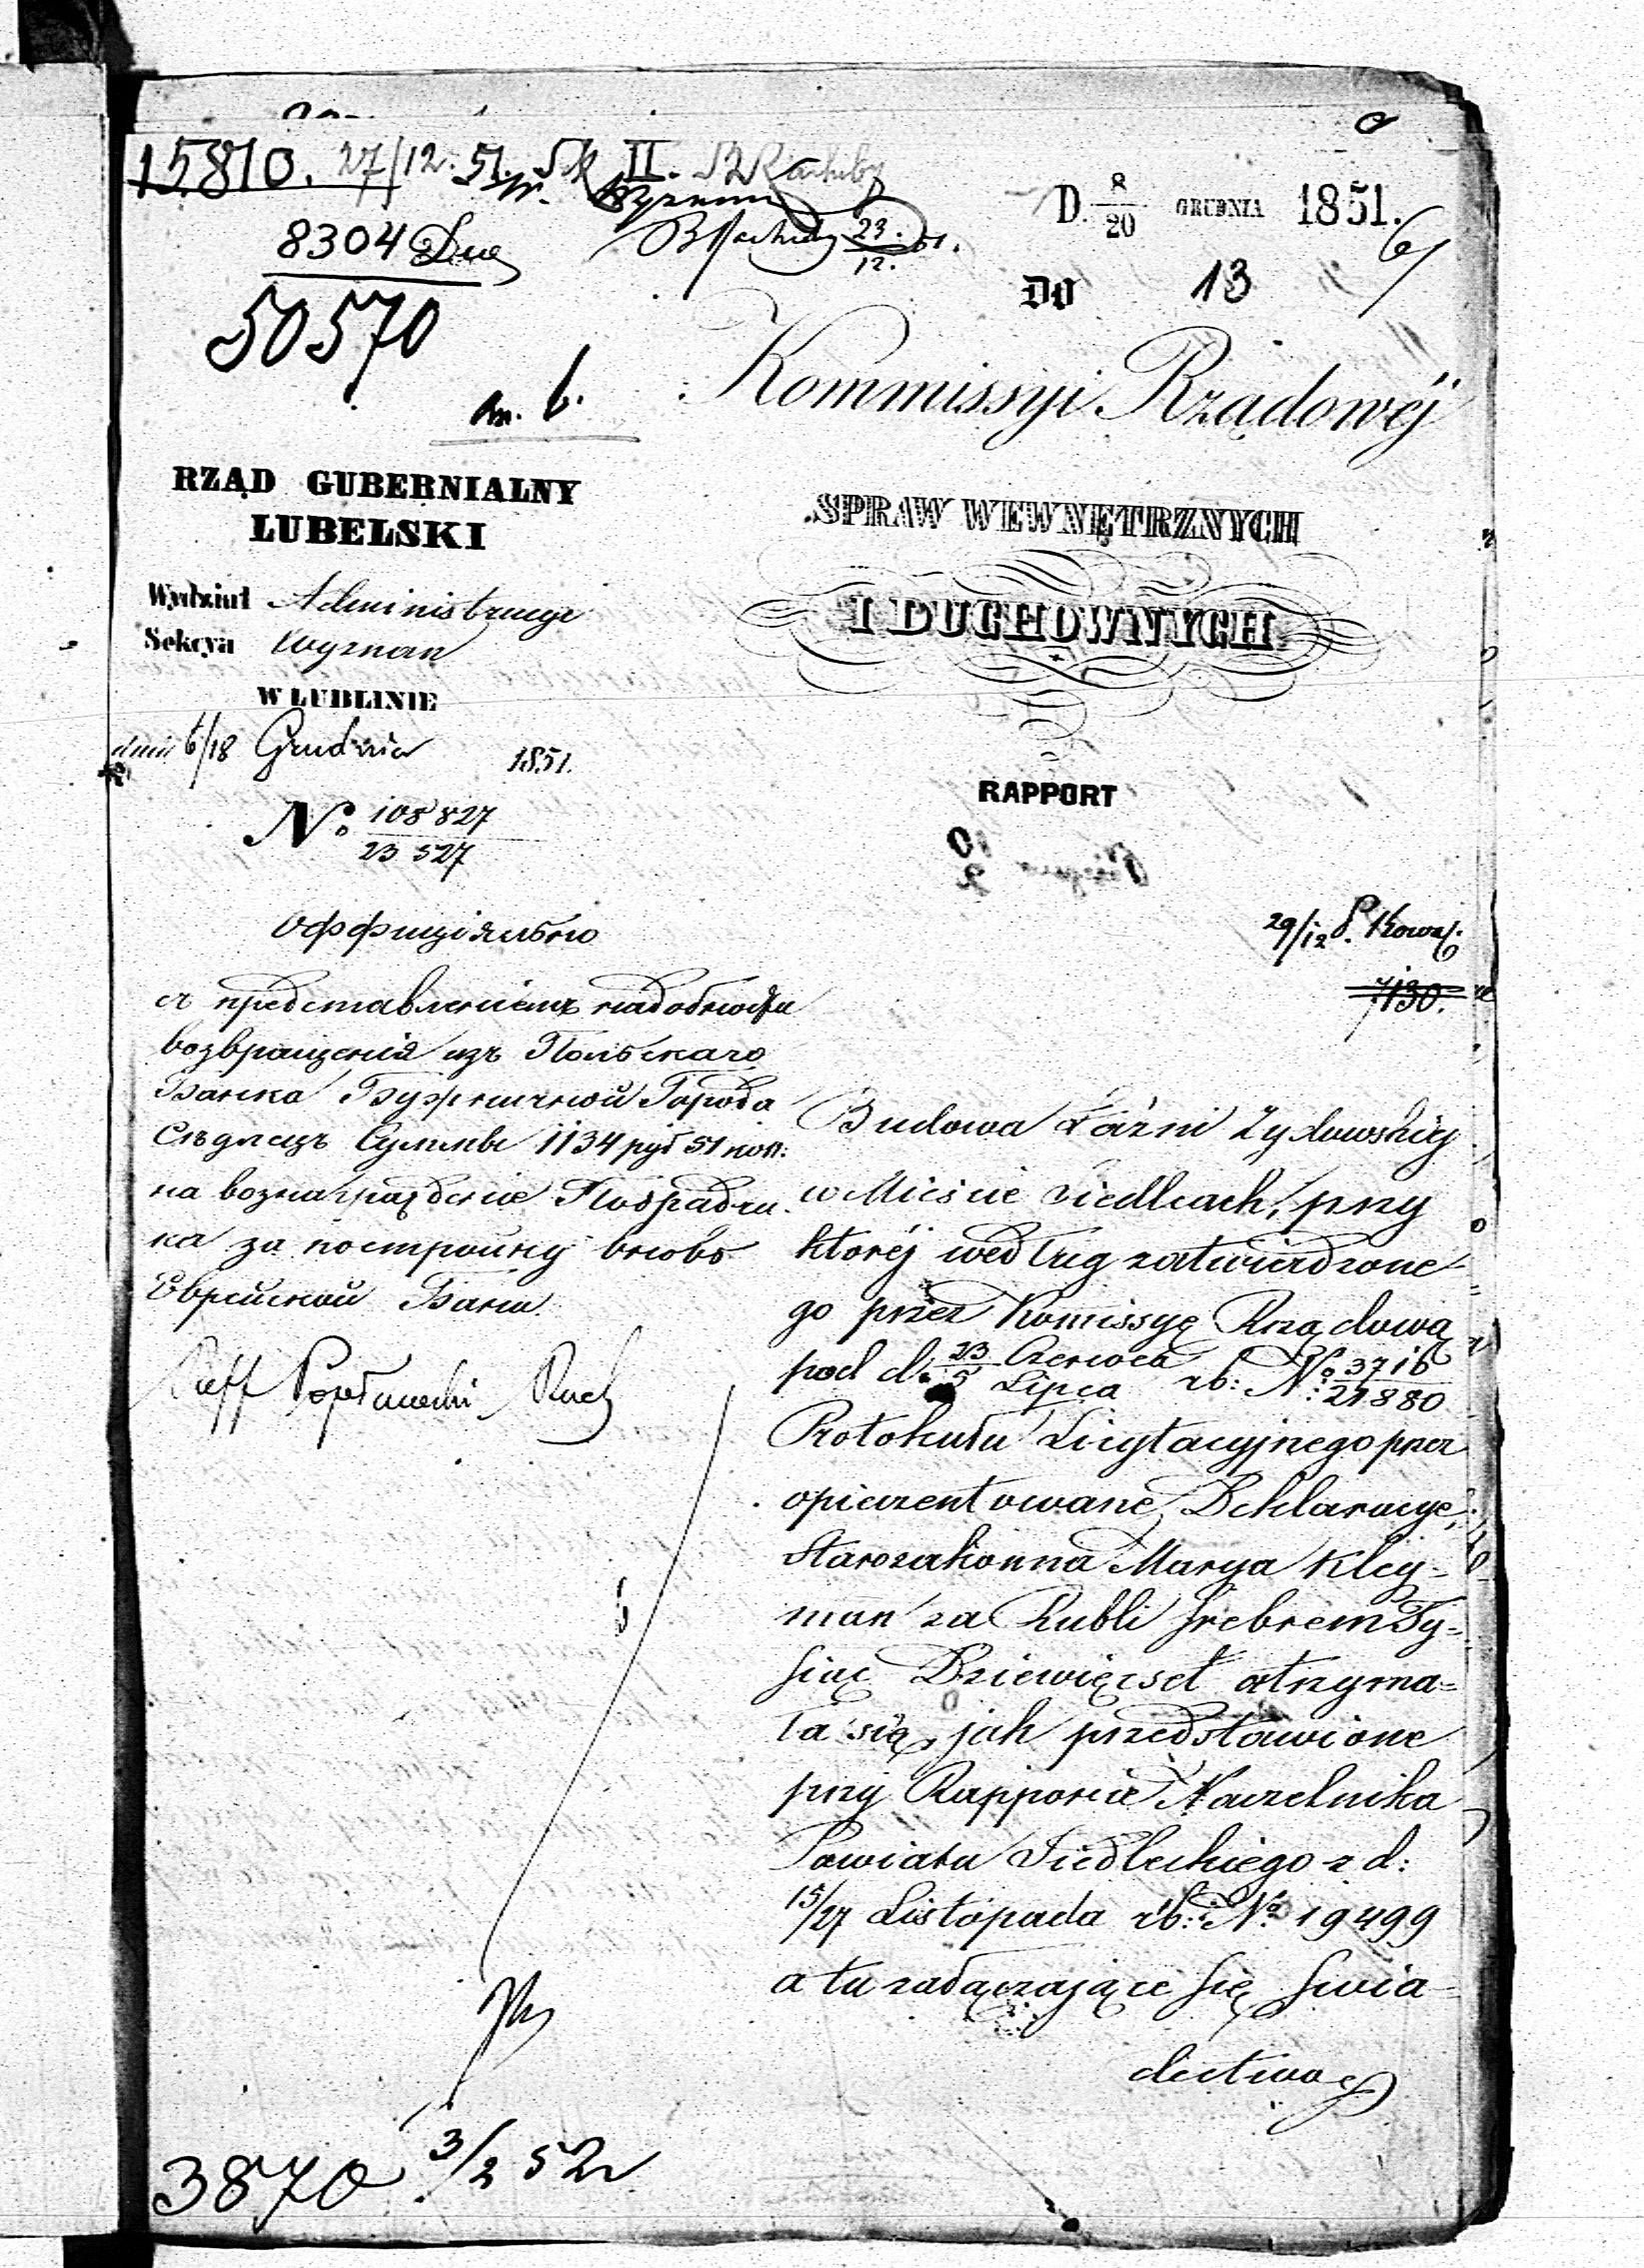 15810. 27/12. 51. II.
8304
50570
23/12. 51.
D. 8/20 GRUDNIA 1851.
DO 13
Kommissyi Rządowéj
SPRAW WEWNĘTRZNYCH
I DUCHOWNYCH
RAPPORT
RZĄD GUBERNIALNY
LUBELSKI
Wydział Administracyi
Sekcya Wyznan
W LUBLINIE
dnia 6/18 Grudnia 1851.
No. 108827/23527
Оффиціяльно
съ представленіемъ надобности
возвращенія изъ Польскаго
Банка Городa
Сѣдлецъ Суммы 1134 руб 51 коп:
на вознагражденіе Подрядчи-
ка за постройку вновь
Еврейской Бани.
29/12
7130.
Budowa Łaźni Żydowskiéj
w Mieście Siedlcach, przy
któréj według zatwierdzone-
go przez Komissyę Rządową
pod d. 23 Czerwca/5 Lipca rb: No 3716/21880
Protokułu Licytacyjnego przez
opieczentowane Deklaracye,
Starozakonna Marya Kley-
man za Rubli srebrem Ty-
siąc Dziewięcset utrzyma-
ła się, jak przedstawione
przy Rapporcie Naczelnika
Powiatu Siedleckiego z d:
15/27 Listopada rb: No 19499
a tu załączające się świa-
dectwo
3870 3/2 52